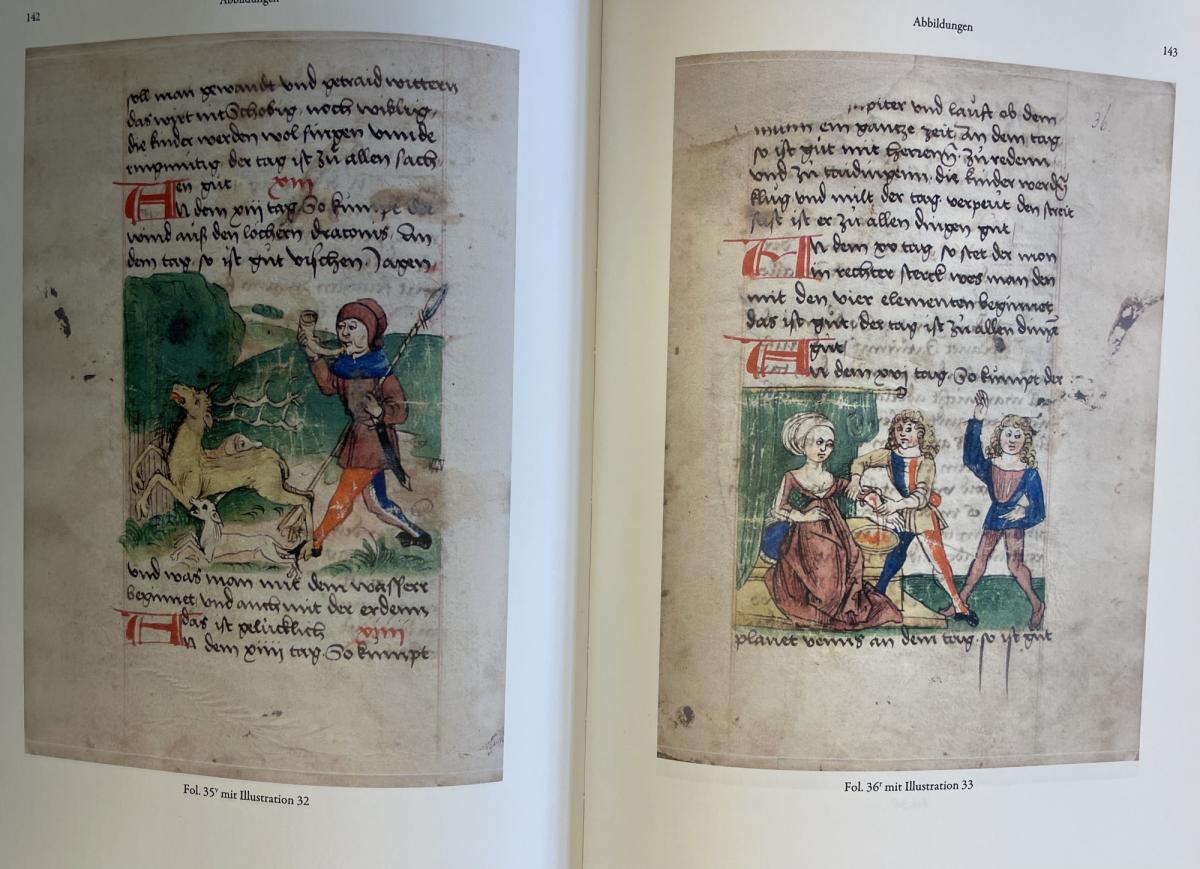 142
Abbildungen
soll man gewandt vnd getraid wittern
das wirt nit Schobig, noch wiblig,
die kinder werden wol singen vnnd
ringmütig, der tag ist zü allen sach
en güt xiii
An dem xiii tag. So kümpt der
wind auß den lochern draconis. An
dem tag, so ist güt vischen Jagen,
vnd was man mit dem wasserr
beginnet, vnd auch mit der erdenn
das ist gelücklich xiiii
An dem xiiii tag. So kumpt
Fol. 35v mit Illustration 32
Abbildungen
143
36
Jupiter vnd laüft ob dem
mann ein gantze zeit An dem tag
so ist güt mit herrenn. zü redenn
vnd zü taidingenn. die kinder werdn
klüg vnd milt der tag verpeüt den streit
sust ist er zü allen dingen güt,
An dem xv tag, so stet der mon
in rechter sterck wes man den
mit den vier elementen beginnet
das ist güt, der tag ist zü allen dinge
güt
An dem xvi tag. So kümpt der
planet venus an dem tag. so ist güt
Fol. 36r mit Illustration 33